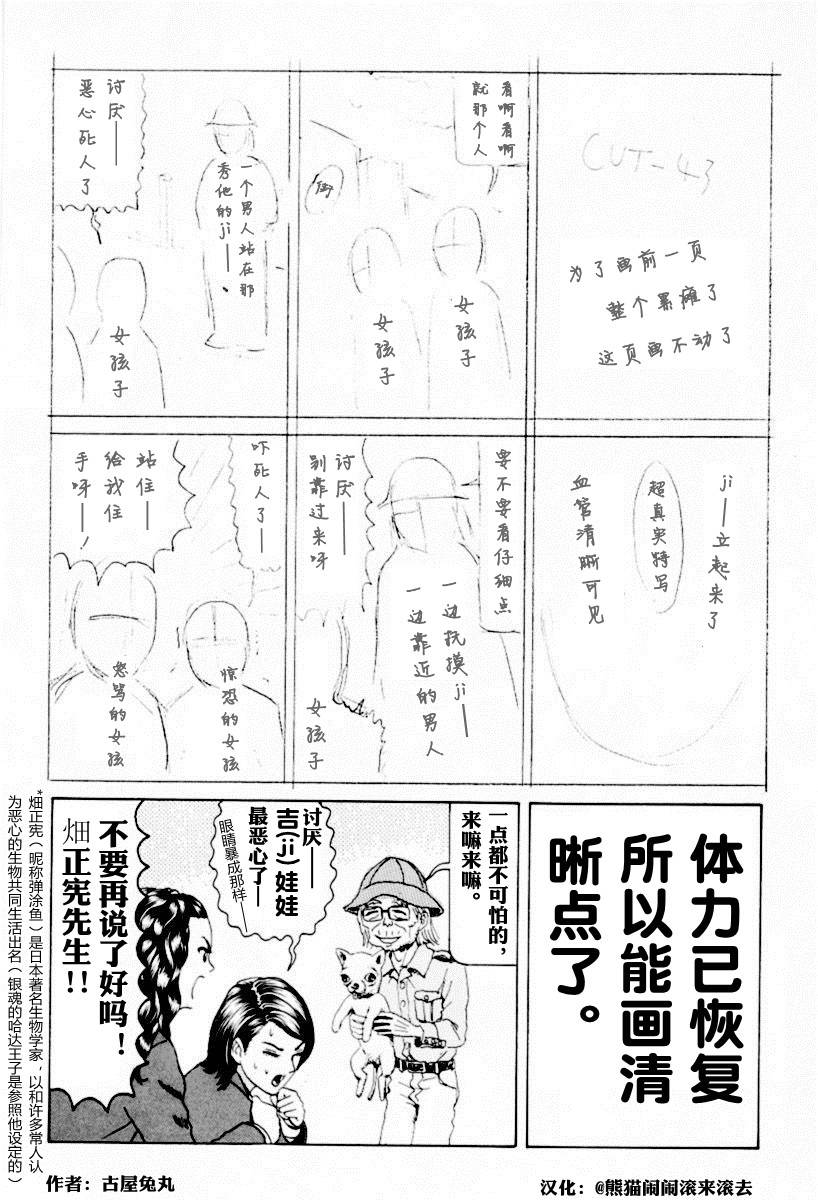 CUT-43
为了画前一页
整个累瘫了
这页画不动了
看啊看啊
就那个人
街
女孩子
女孩子
一个男人站在那
秀他的ji——、
讨厌——
恶心死人了
女孩子
ji——立起来了
超真实特写
血管清晰可见
要不要看仔细点
一边抚摸ji——
一边靠近的男人
讨厌——
别靠过来呀
女孩子
吓死人了——
站住——
给我住
手呀——！
惊恐的女孩
怒骂的女孩
体力已恢复
所以能画清
晰点了。
一点都不可怕的，
来嘛来嘛。
讨厌——
吉(ji)娃娃
最恶心了——
眼睛暴成那样——
不要再说了好吗！
畑正宪先生!!
*畑正宪（昵称弹涂鱼）是日本著名生物学家，以和许多常人认
为恶心的生物共同生活出名（银魂的哈达王子是参照他设定的）
作者：古屋兔丸
汉化：@熊猫闹闹滚来滚去